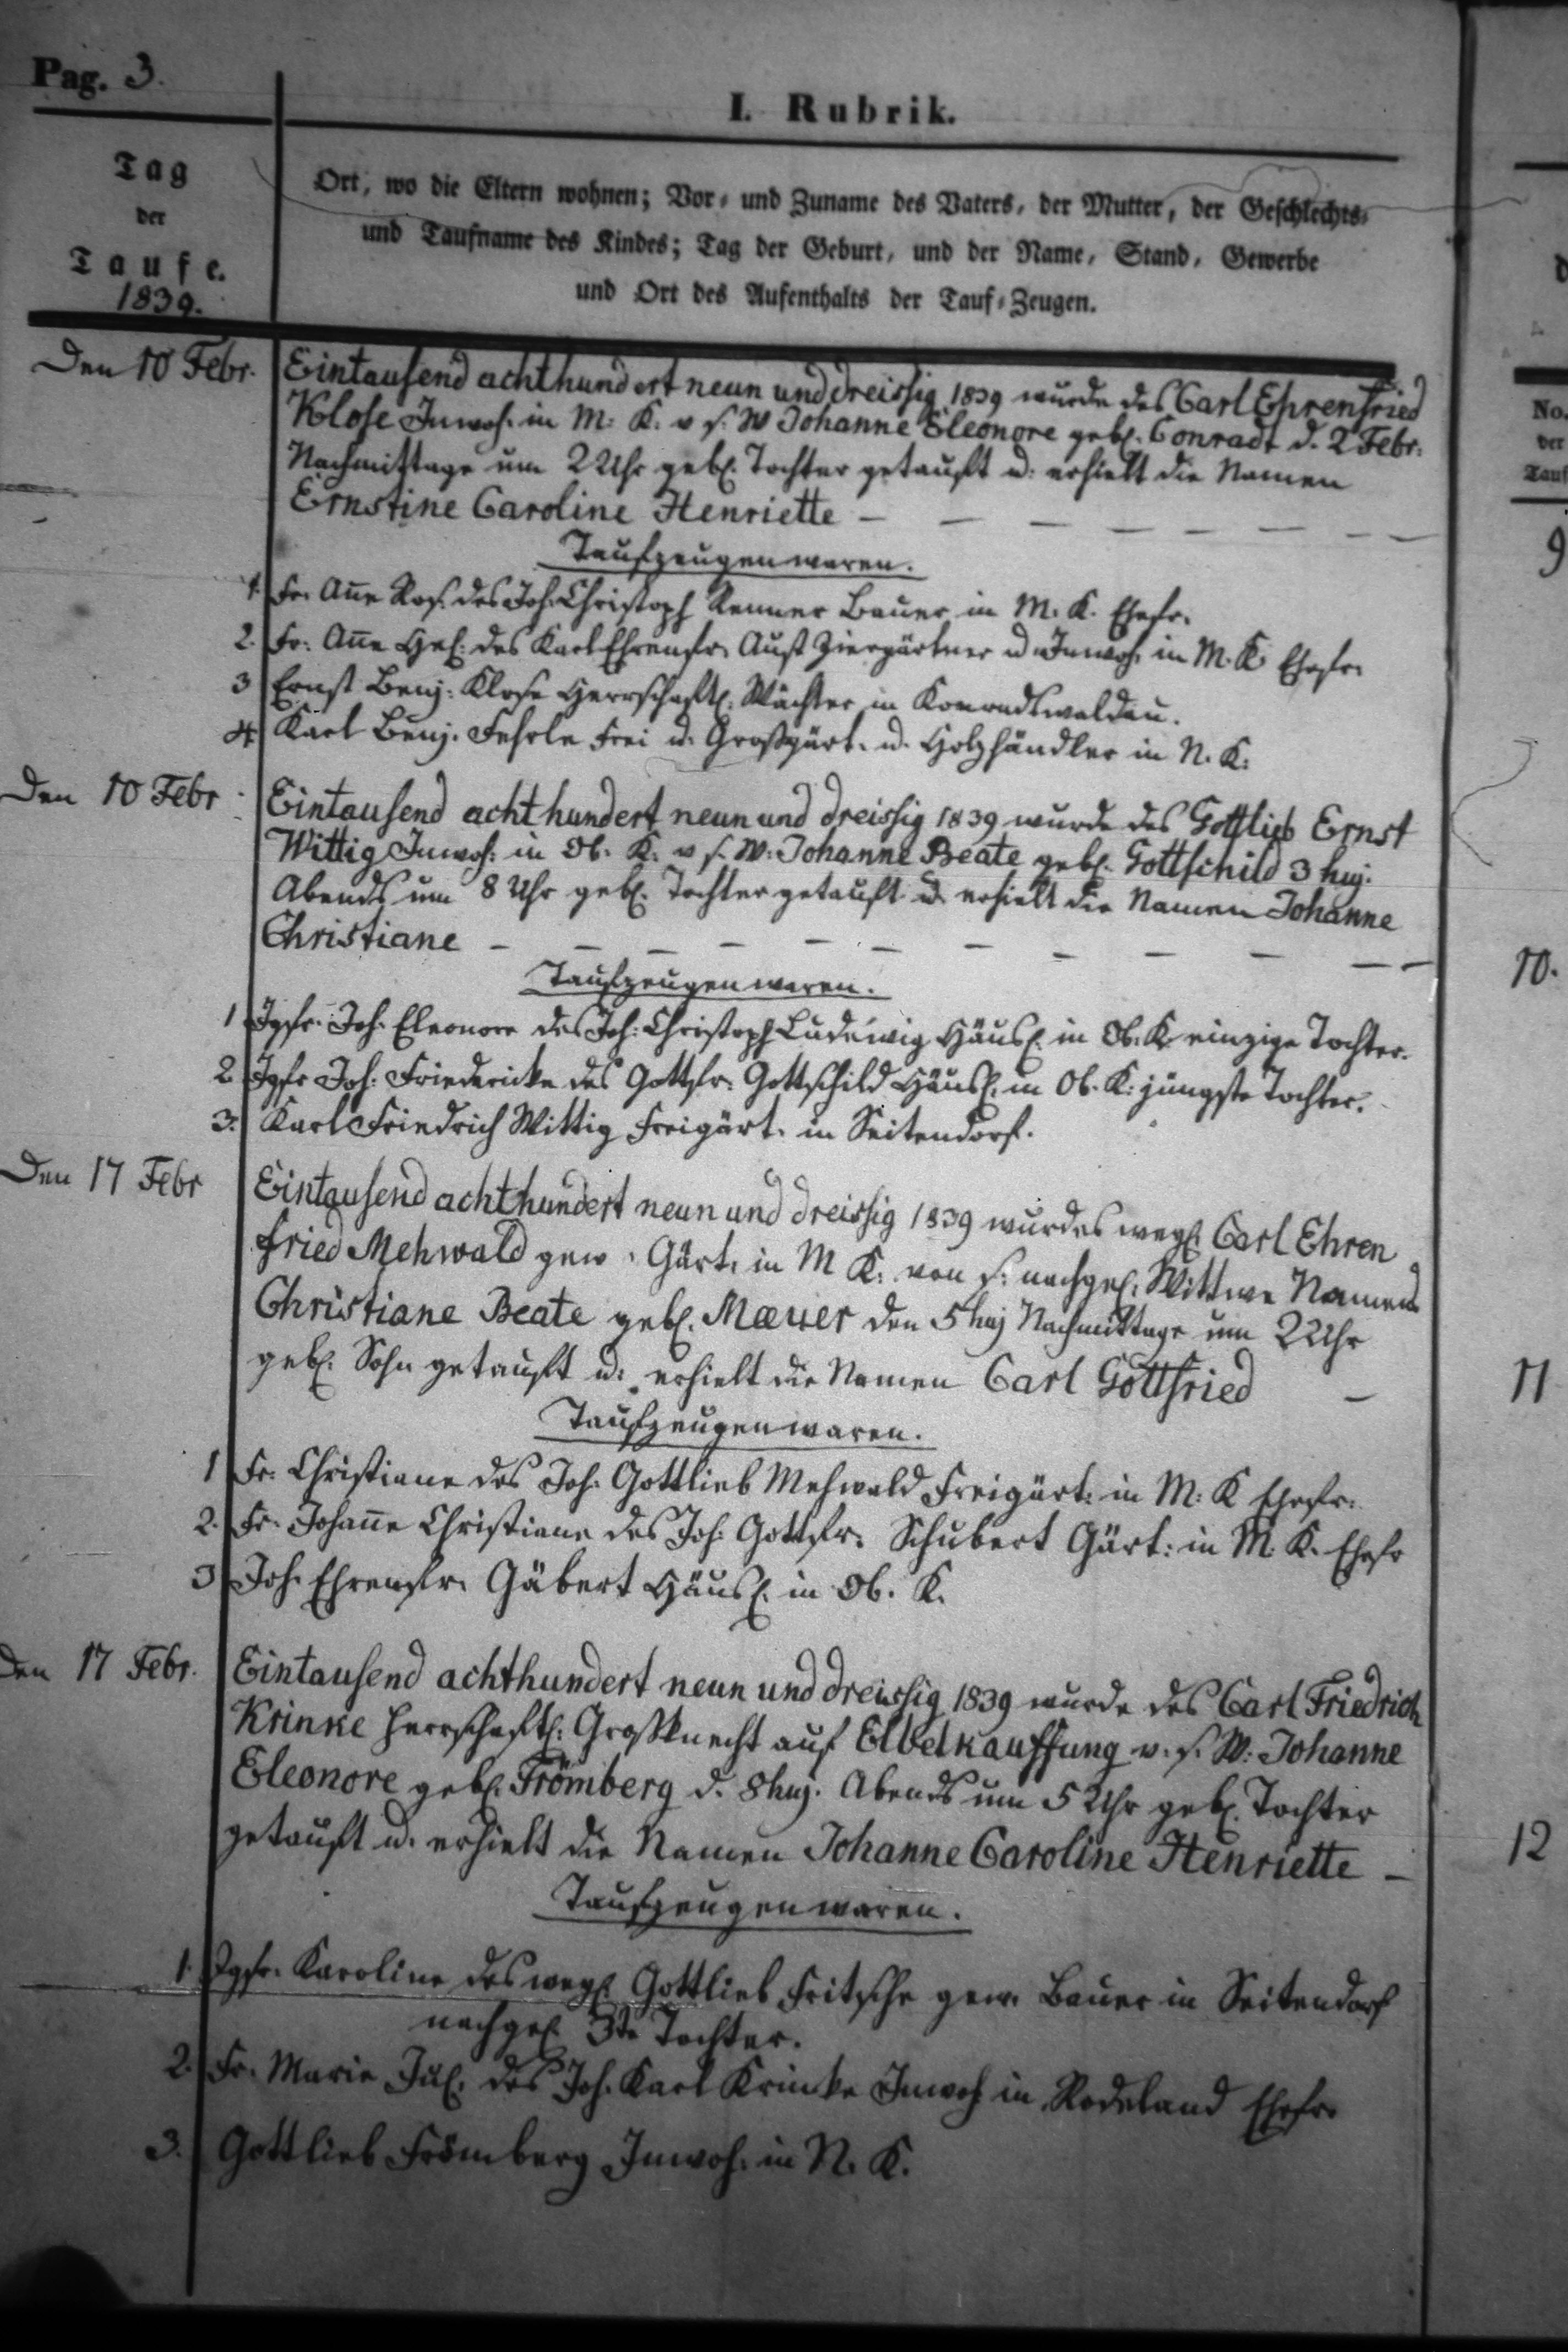 Pag. 3.
I. Rubrik.
Tag
der
Taufe.
1839.
Ort, wo die Eltern wohnen; Vor- und Zuname des Vaters, der Mutter, der Geschlechts-
und Taufname des Kindes; Tag der Geburt, und der Name, Stand, Gewerbe
und Ort des Aufenthalts der Tauf-Zeugen.
No.
der
Tauf
Den 10 Febr.
Eintausend achthundert neun und dreissig 1839 wurde des Carl Ehrenfried
Klose Inwoh. in M: K. v s. W Johanne Eleonore gebl. Conradt d. 2 Febr.
Nachmittags um 2 Uhr gebl. Tochter getauft u. erhielt die Namen
Ernstine Caroline Henriette —
9
Taufzeugen waren.
1. Fr. Añe Ros. des Joh. Christoph Renner Bauer in M. K. Ehefr.
2. Fr. Añe Hel. des Karl Ehrenfr. Aust Ziergärtner u Inwoh. in M. K Ehefr.
3 Ernst Benj. Klose Herrschaftl. Wächter in Konradswaldau.
4 Karl Benj. Fehrle Frei u. Großgärt. u. Holzhändler in N. K.
Den 10 Febr
Eintausend achthundert neun und dreissig 1839 wurde des Gottlieb Ernst
Wittig Inwoh. in Ob. K. v s. W. Johanne Beate gebl. Gottschild 3 huj.
Abends um 8 Uhr gebl. Tochter getauft u. erhielt die Namen Johanne
Christiane —
10.
Taufzeugen waren.
1 Jgfr. Joh. Eleonore des Joh. Christoph Ludewig Häusl. in Ob. K einzige Tochter.
2 Jgfr Joh. Friedericke des Gottfr. Gottschild Häusl. in Ob. K. jüngste Tochter.
3. Karl Friedrich Wittig Freigärt. in Seitendorf.
Den 17 Febr
Eintausend achthundert neun und dreissig 1839 wurdes wegl. Carl Ehren
fried Mehwald gew. Gärt. in M K. von s. nachgel. Wittwe Namens
Christiane Beate gebl. Maeuer den 5 huj Nachmittags um 2 Uhr
gebl. Sohn getauft u. erhielt die Namen Carl Gottfried —
11
Taufzeugen waren.
1 Fr. Christiane des Joh. Gottlieb Mehwald Freigärt. in M: K Ehefr.
2. Fr. Johañe Christiane des Joh. Gottfr. Schubert Gärt: in M. K. Ehefr
3 Joh. Ehrenfr. Gäbert Häusl. in Ob. K.
Den 17 Febr.
Eintausend achthundert neun und dreissig 1839 wurde des Carl Friedrich
Krinke Herrschaftl. Großknecht auf Elbelkauffung v. s. W. Johanne
Eleonore gebl. Frömberg d. 8 huj. Abends um 5 Uhr gebl. Tochter
getauft u. erhielt die Namen Johanne Caroline Henriette —
12
Taufzeugen waren.
1. Jgfr. Karoline des wegl. Gottlieb Fritsche gew. Bauer in Seitendorf
nachgel. 3te Tochter.
2. Fr. Marie Jul. des Joh. Karl Krinke Inwoh in Rodeland Ehefr.
3. Gottlieb Frömberg Inwoh. in N. K.